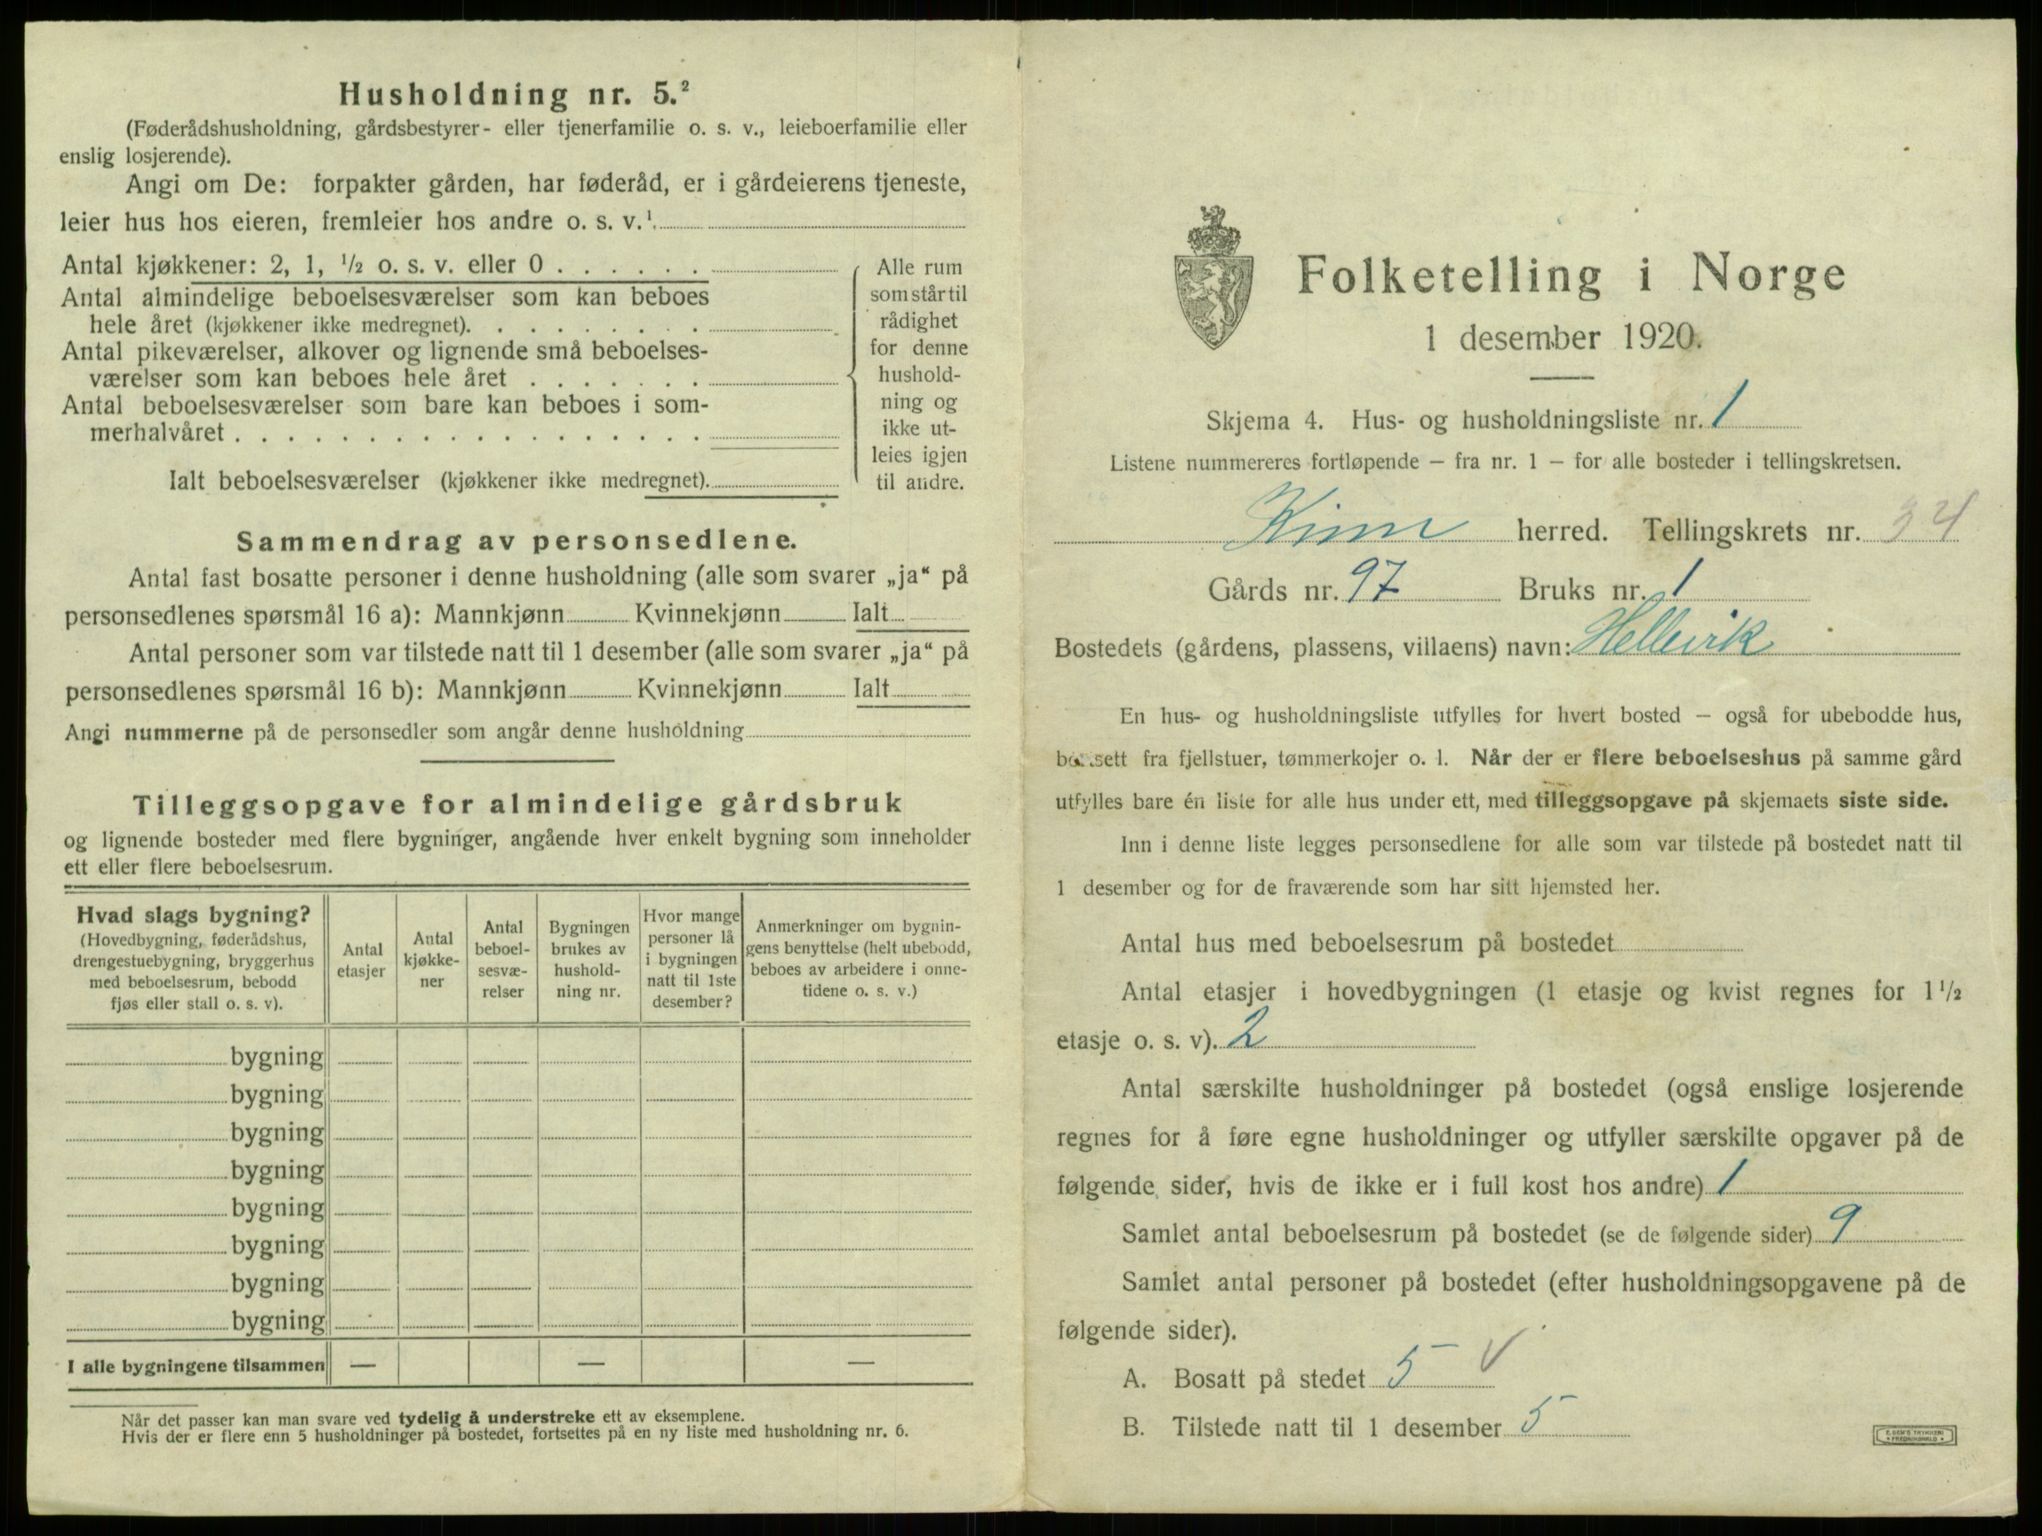 Husholdning nr. 5.²
(Føderådshusholdning, gårdsbestyrer- eller tjenerfamilie o. s. v., leieboerfamilie eller
enslig losjerende).
Angi om De: forpakter gården, har føderåd, er i gårdeierens tjeneste,
leier hus hos eieren, fremleier hos andre o. s. v.¹
Antal kjøkkener: 2, 1, ½ o. s. v. eller 0 . . . . . .
Antal almindelige beboelsesværelser som kan beboes
hele året (kjøkkener ikke medregnet). . . . . . . . .
Antal pikeværelser, alkover og lignende små beboelses-
værelser som kan beboes hele året . . . . . . .
Antal beboelsesværelser som bare kan beboes i som-
merhalvåret . . . . . . . . . . . . . . . . . .
Ialt beboelsesværelser (kjøkkener ikke medregnet).
Alle rum
som står til
rådighet
for denne
hushold-
ning og
ikke ut-
leies igjen
til andre.
Sammendrag av personsedlene.
Antal fast bosatte personer i denne husholdning (alle som svarer „ja“ på
personsedlenes spørsmål 16 a): Mannkjønn Kvinnekjønn Ialt
Antal personer som var tilstede natt til 1 desember (alle som svarer „ja“ på
personsedlenes spørsmål 16 b): Mannkjønn Kvinnekjønn Ialt
Angi nummerne på de personsedler som angår denne husholdning
Tilleggsopgave for almindelige gårdsbruk
og lignende bosteder med flere bygninger, angående hver enkelt bygning som inneholder
ett eller flere beboelsesrum.
Hvad slags bygning?
(Hovedbygning, føderådshus,
drengestuebygning, bryggerhus
med beboelsesrum, bebodd
fjøs eller stall o. s. v).
Antal
etasjer
Antal
kjøkke-
ner
Antal
beboel-
sesvæ-
relser
Bygningen
brukes av
hushold-
ning nr.
Hvor mange
personer lå
i bygningen
natt til 1ste
desember?
Anmerkninger om bygnin-
gens benyttelse (helt ubebodd,
beboes av arbeidere i onne-
tidene o. s. v.)
bygning
bygning
bygning
bygning
bygning
bygning
bygning
bygning
I alle bygningene tilsammen — — —
Når det passer kan man svare ved tydelig å understreke ett av eksemplene.
Hvis der er flere enn 5 husholdninger på bostedet, fortsettes på en ny liste med husholdning nr. 6.
Folketelling i Norge
1 desember 1920.
Skjema 4. Hus- og husholdningsliste nr. 1
Listene nummereres fortløpende – fra nr. 1 – for alle bosteder i tellingskretsen.
Kinn herred. Tellingskrets nr. 34
Gårds nr. 97 Bruks nr. 1
Bostedets (gårdens, plassens, villaens) navn: Hellevik
En hus- og husholdningsliste utfylles for hvert bosted – også for ubebodde hus,
bortsett fra fjellstuer, tømmerkojer o. l. Når der er flere beboelseshus på samme gård
utfylles bare én liste for alle hus under ett, med tilleggsopgave på skjemaets siste side.
Inn i denne liste legges personsedlene for alle som var tilstede på bostedet natt til
1 desember og for de fraværende som har sitt hjemsted her.
Antal hus med beboelsesrum på bostedet
Antal etasjer i hovedbygningen (1 etasje og kvist regnes for 1 ½
etasje o. s. v). 2
Antal særskilte husholdninger på bostedet (også enslige losjerende
regnes for å føre egne husholdninger og utfyller særskilte opgaver på de
følgende sider, hvis de ikke er i full kost hos andre) 1
Samlet antal beboelsesrum på bostedet (se de følgende sider) 9
Samlet antal personer på bostedet (efter husholdningsopgavene på de
følgende sider).
A. Bosatt på stedet 5 V
B. Tilstede natt til 1 desember 5